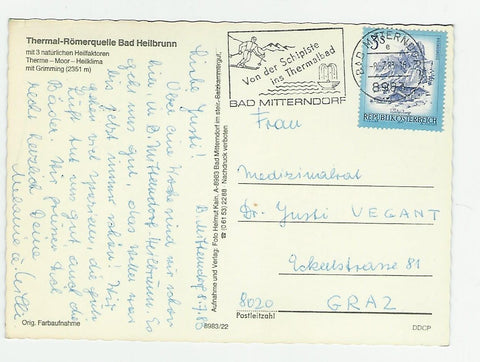 Thermal-Römerquelle Bad Heilbrunn
mit 3 natürlichen Heilfaktoren
Therme – Moor – Heilklima
mit Grimming (2351 m)
Von der Schipiste
ins Thermalbad
BAD MITTERNDORF
BAD MITTERNDORF
8983
S 3
REPUBLIK ÖSTERREICH
B. Mitterndorf 8.7.83
Liebe Justi!
Über eine Woche sind wir schon
hier in B. Mitterndorf-Heilbrunn. Es
geht uns gut, das Wetter war
bis jetzt immer schön! Wir
gehen viel spazieren, die gute
Luft tut uns gut, auch die
Bäder. Wir grüßen Dich
recht herzlich Deine
Frau
Medizinalrat
Dr. Justi VEGANT
Eckertstrasse 81
8020 GRAZ
Postleitzahl
Aufnahme und Verlag: Foto Helmut Kain, A-8983 Bad Mitterndorf im steir. Salzkammergut,
☎ (0 61 53) 22 68 · Nachdruck verboten
Orig. Farbaufnahme
8983/22
DDCP